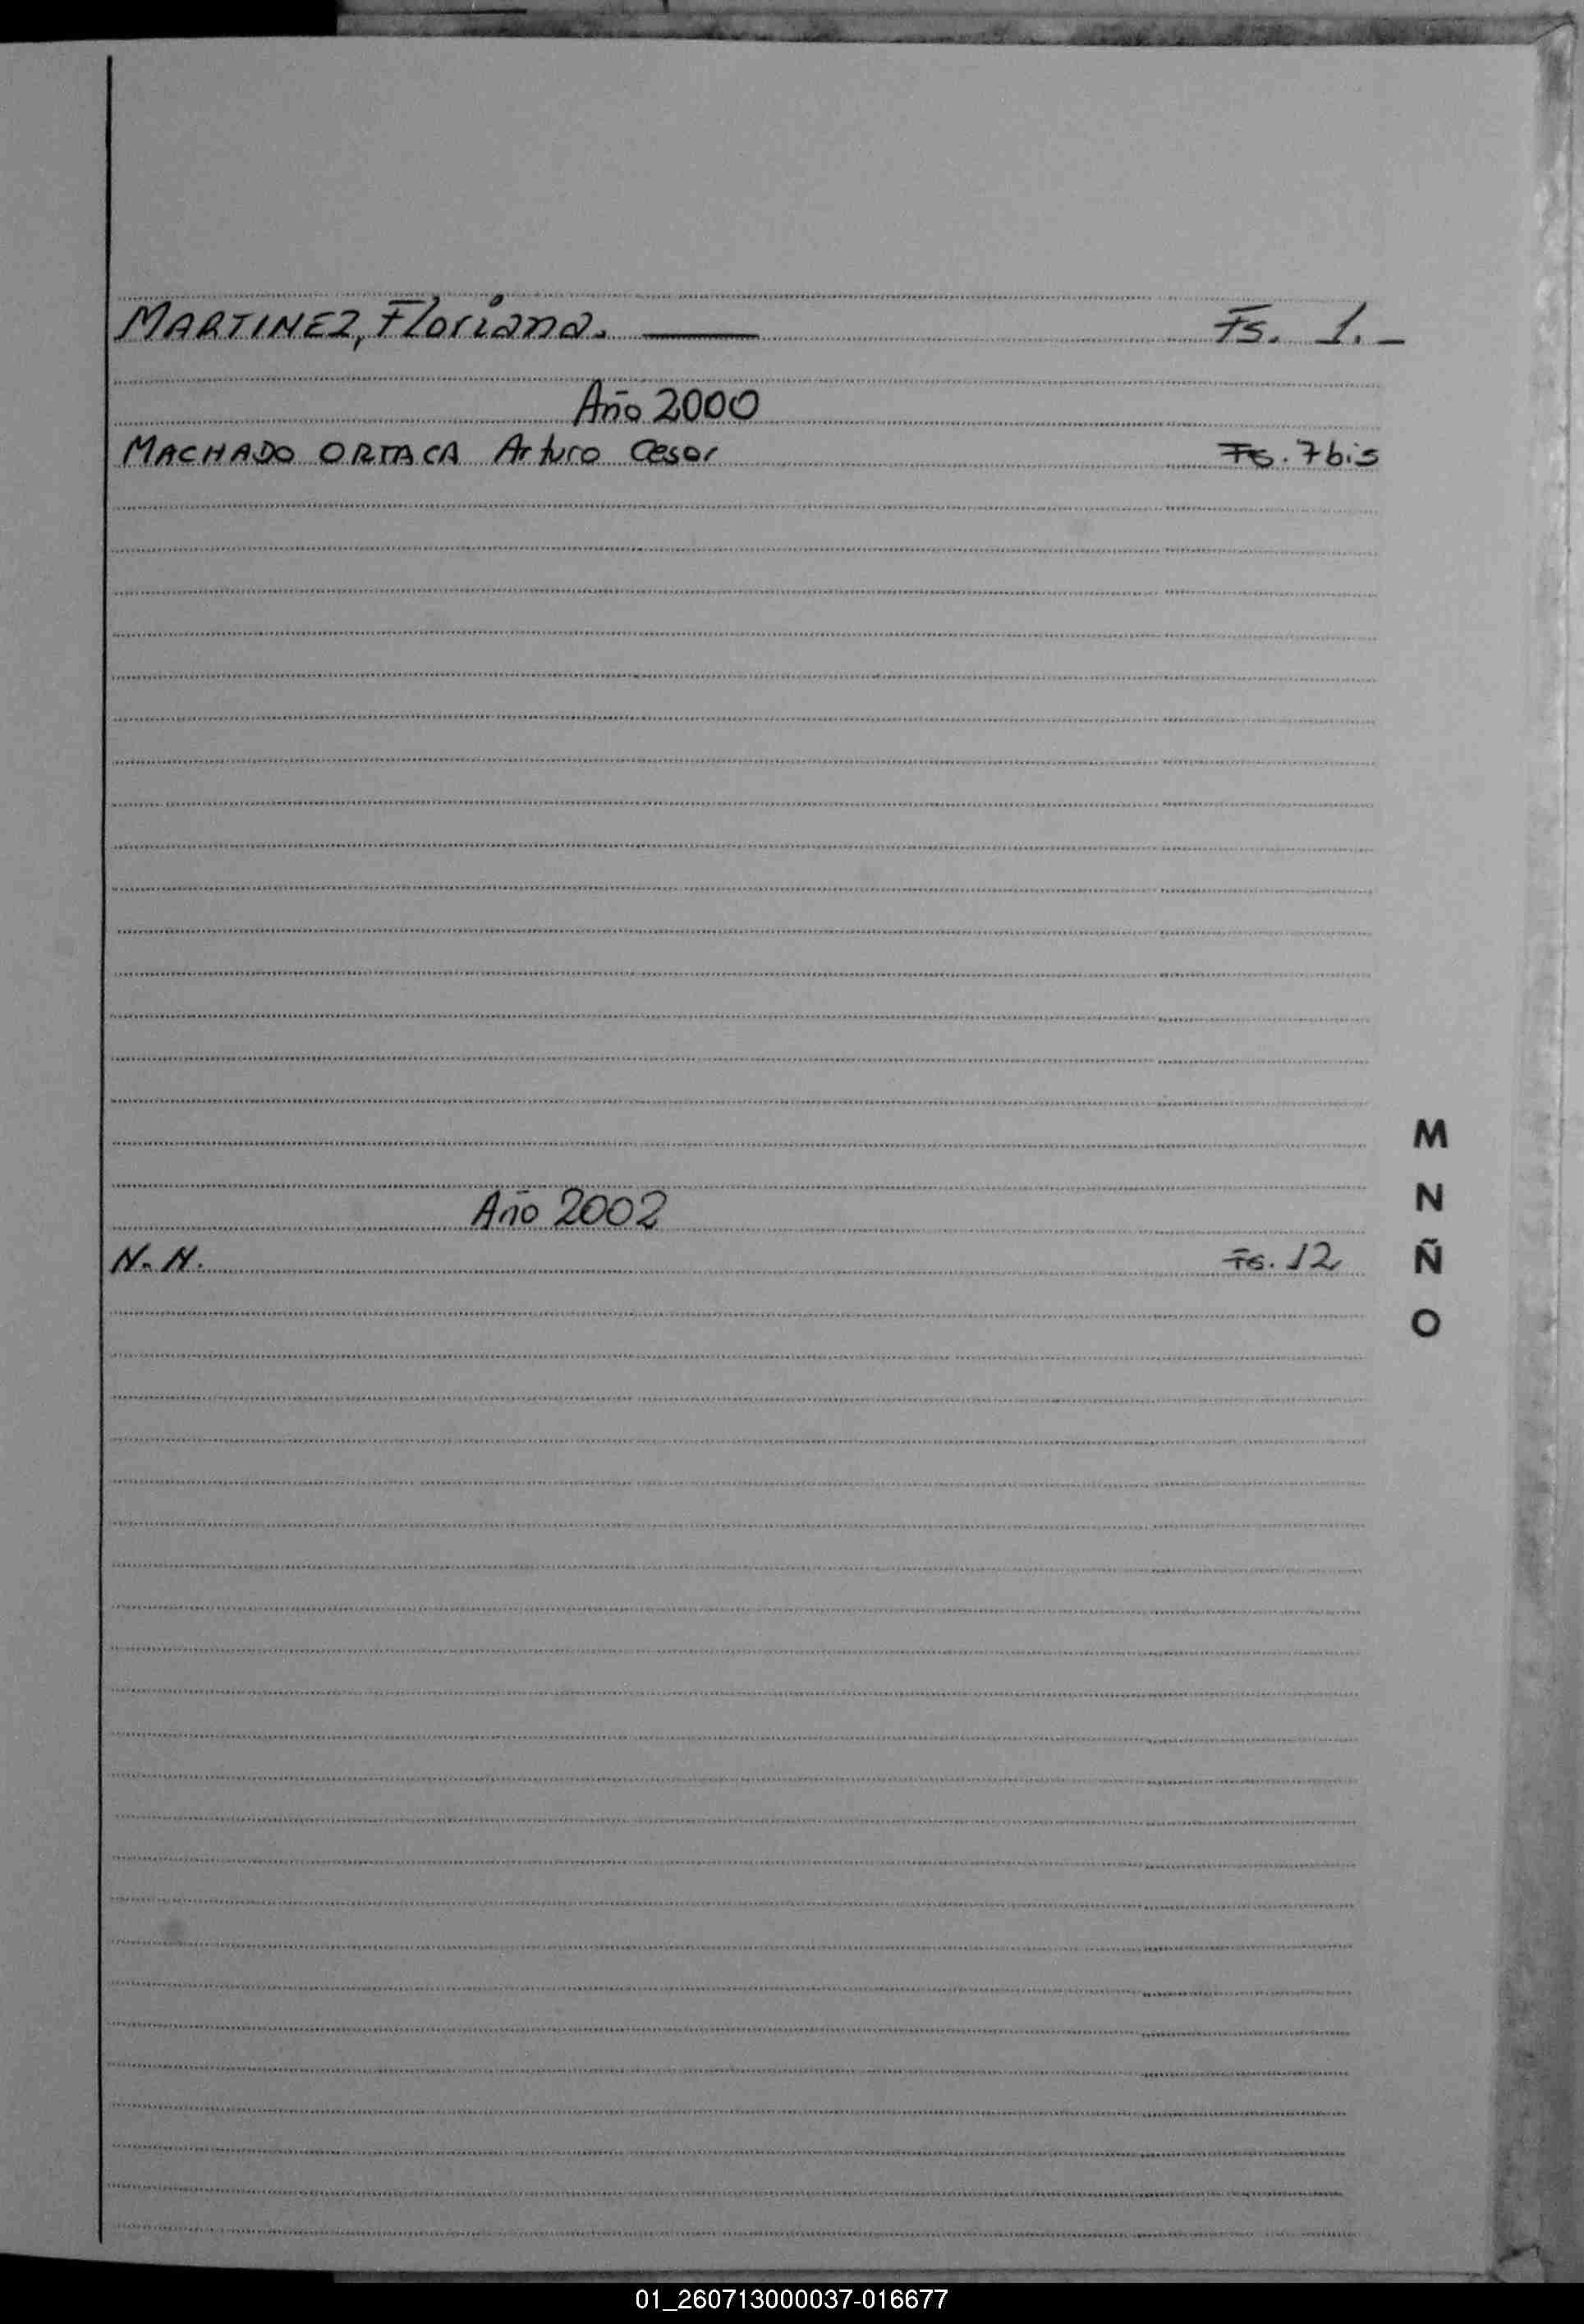 MARTINEZ, Floriana. Fs. 1.-
Año 2000
MACHADO ORTACA Arturo Cesar Fs. 7bis
M
N
Año 2002
N.N. Fs. 12
Ñ
O
01_260713000037-016677